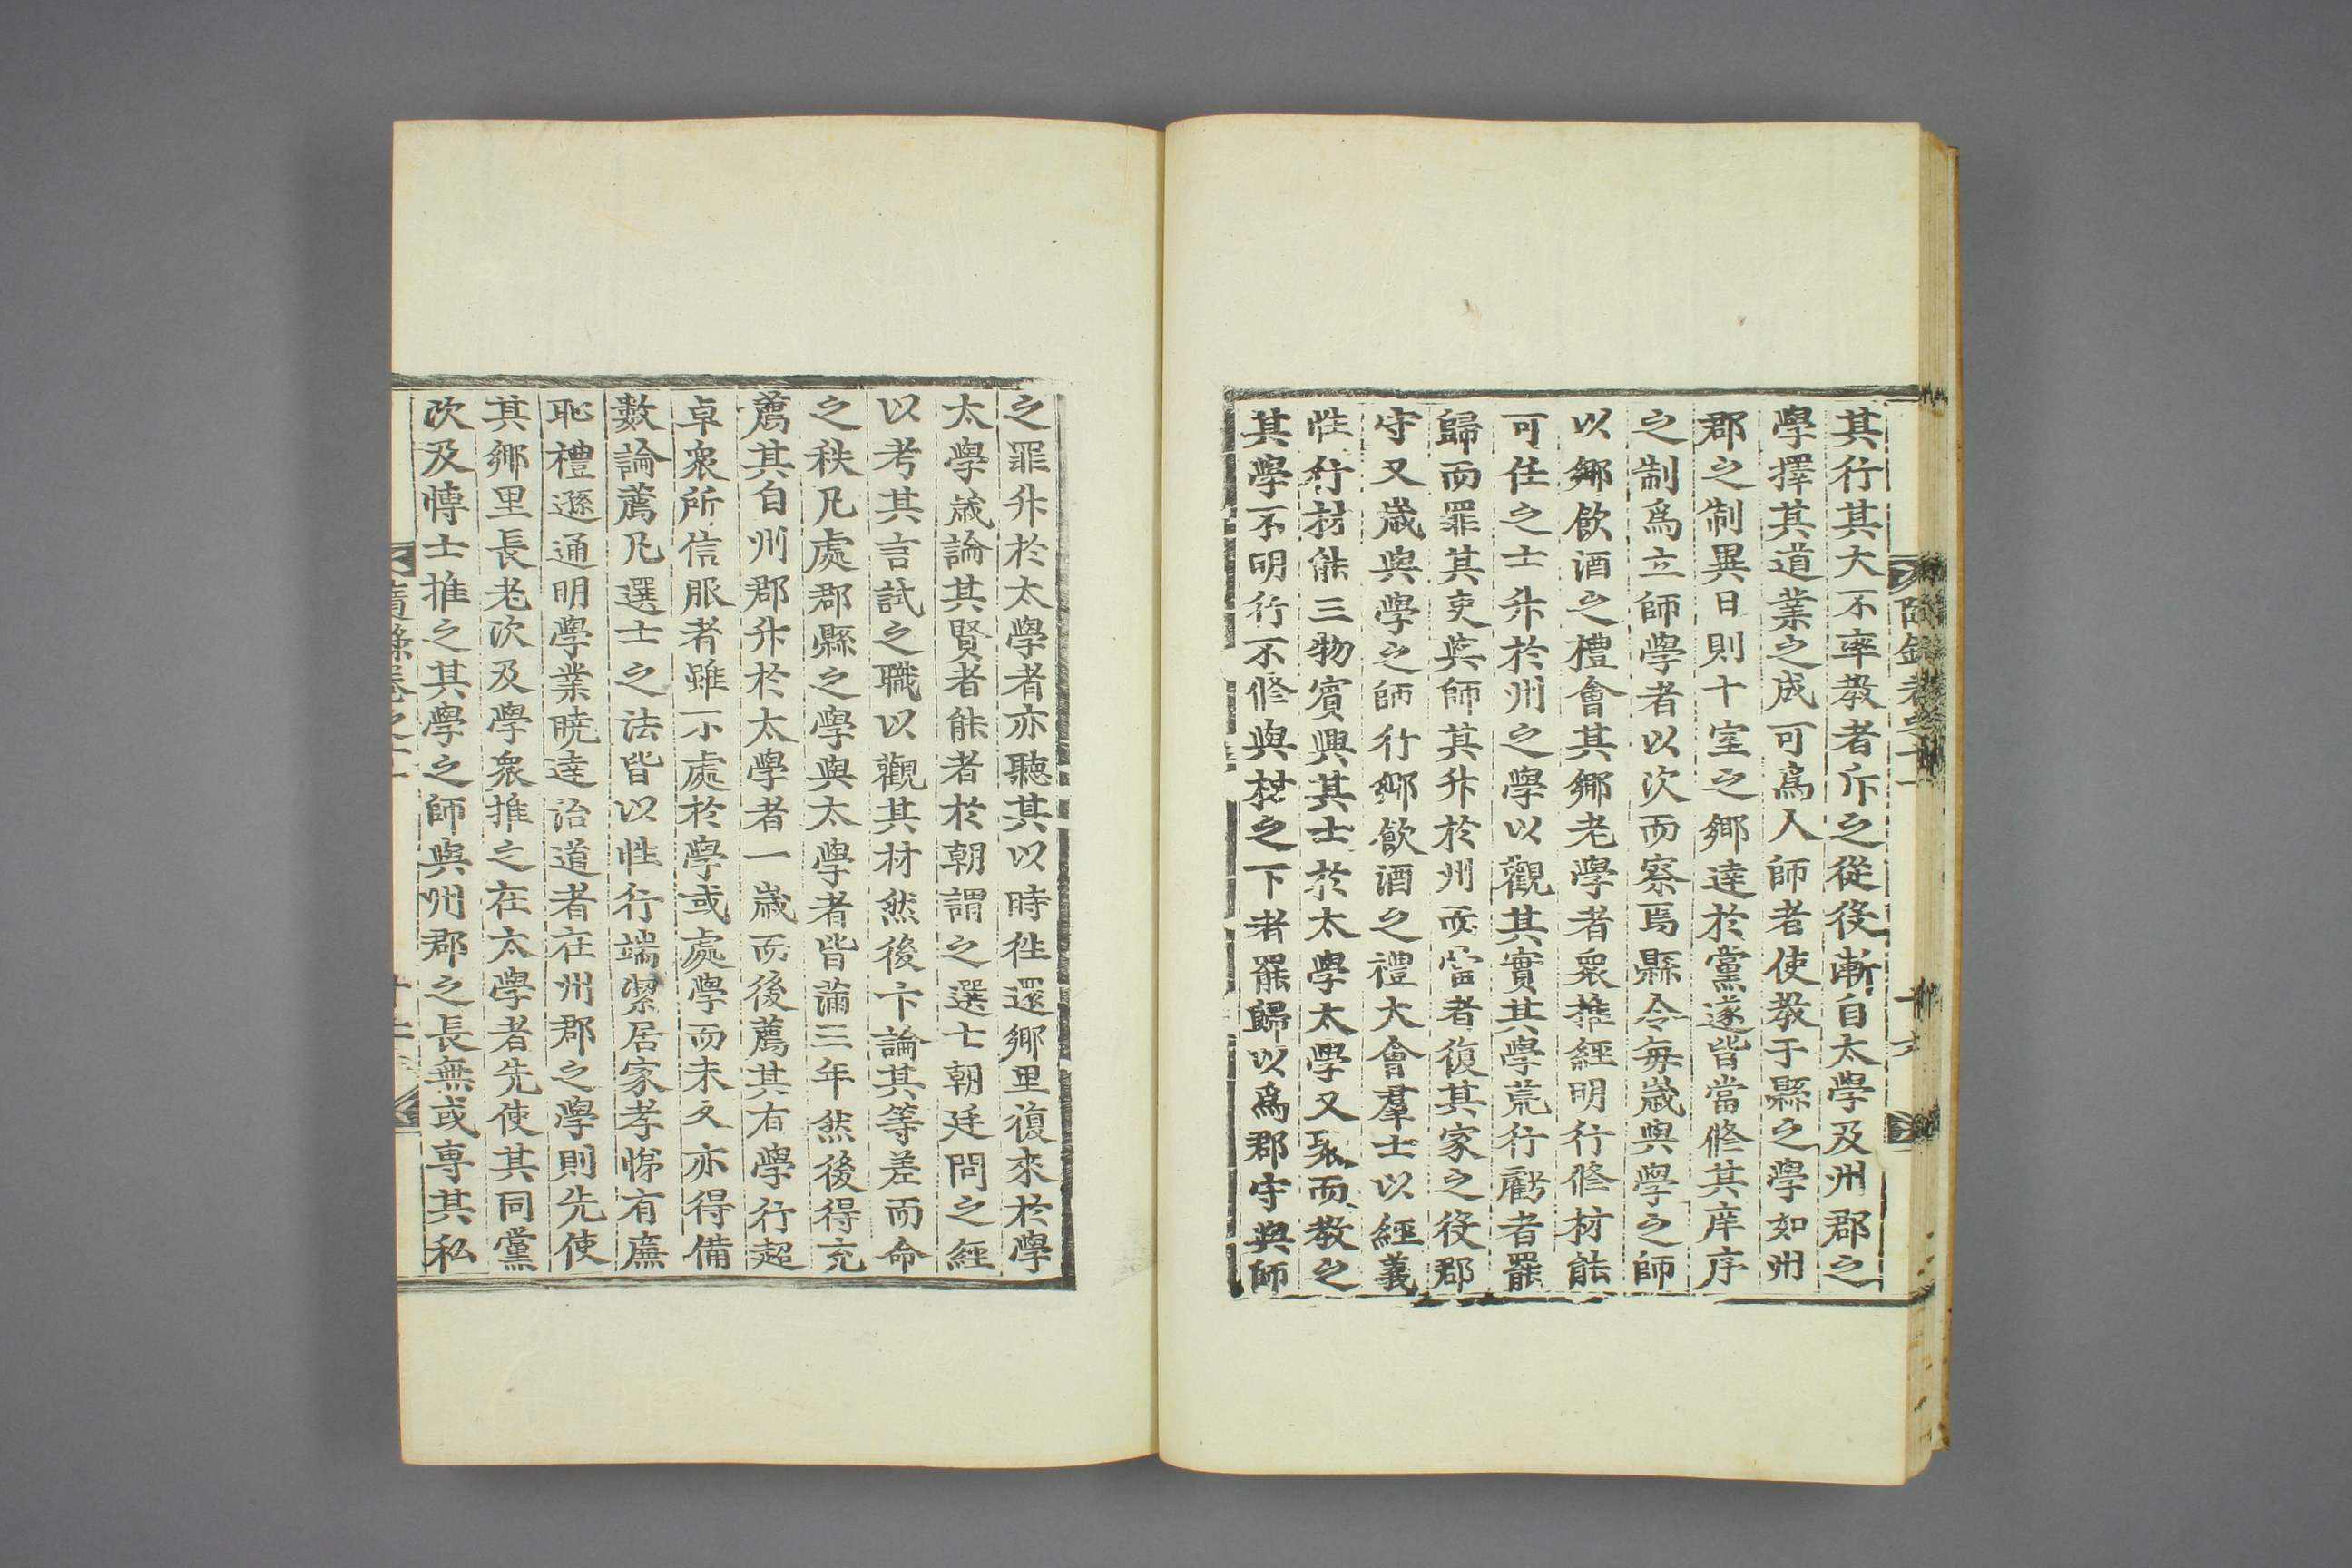 其行其大不率教者斥之從役漸自太學及州郡之
學擇其道業之成可爲人師者使教于縣之學如州
郡之制異日則十室之鄉達於黨遂皆當修其庠序
之制爲立師學者以次而察焉縣令每歲與學之師
以鄉飲酒之禮會其鄉老學者衆推經明行修材能
可任之士升於州之學以觀其實其學荒行虧者罷
歸而罪其吏與師其升於州而當者復其家之役郡
守又歲與學之師行鄉飲酒之禮大會羣士以經義
性行材能三物賓興其士於太學太學又聚而教之
其學不明行不修與材之下者罷歸以爲郡守與師
之罪升於太學者亦聽其以時徃還鄉里復來於學
太學歲論其賢者能者於朝謂之選士朝廷問之經
以考其言試之職以觀其材然後卞論其等差而命
之秩凡處郡縣之學與太學者皆滿三年然後得充
薦其自州郡升於太學者一歲而後薦其有學行超
卓衆所信服者雖不處於學或處學而未久亦得備
數論薦凡選士之法皆以性行端潔居家孝悌有廉
恥禮遜通明學業曉達治道者在州郡之學則先使
其鄉里長老次及學衆推之在太學者先使其同黨
次及愽士推之其學之師與州郡之長無或専其私